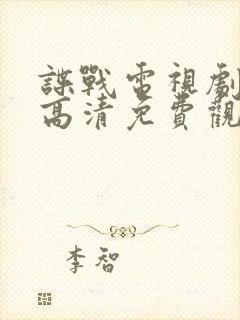 諜戰電視劇
高清免費觀
李智